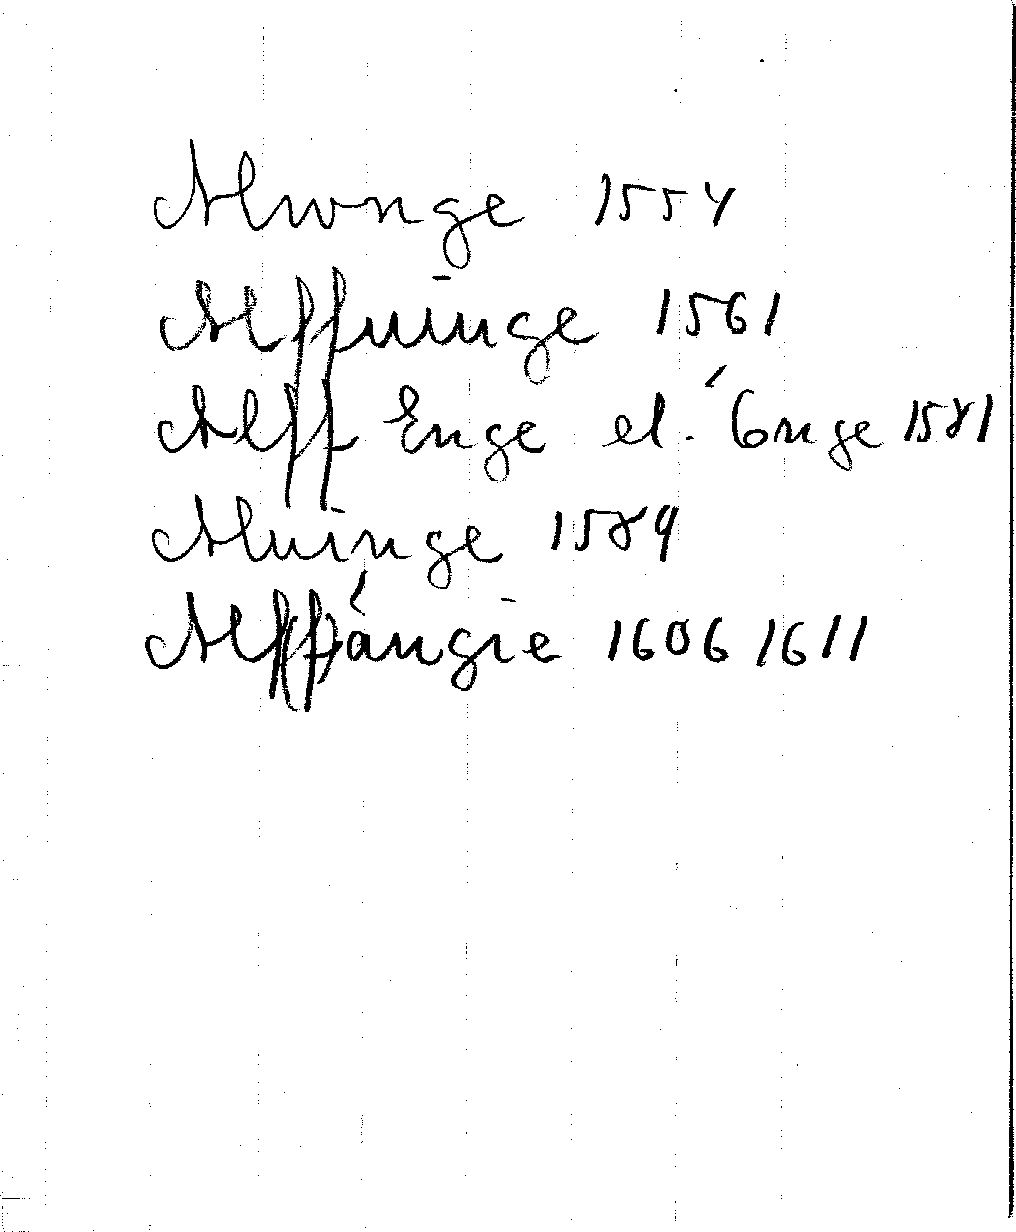 Alwnge 1554
Alffuinge 1561
Alff Enge el. Énge 1581
Aluinge 1589
Alff(f)ángie 1606 1611